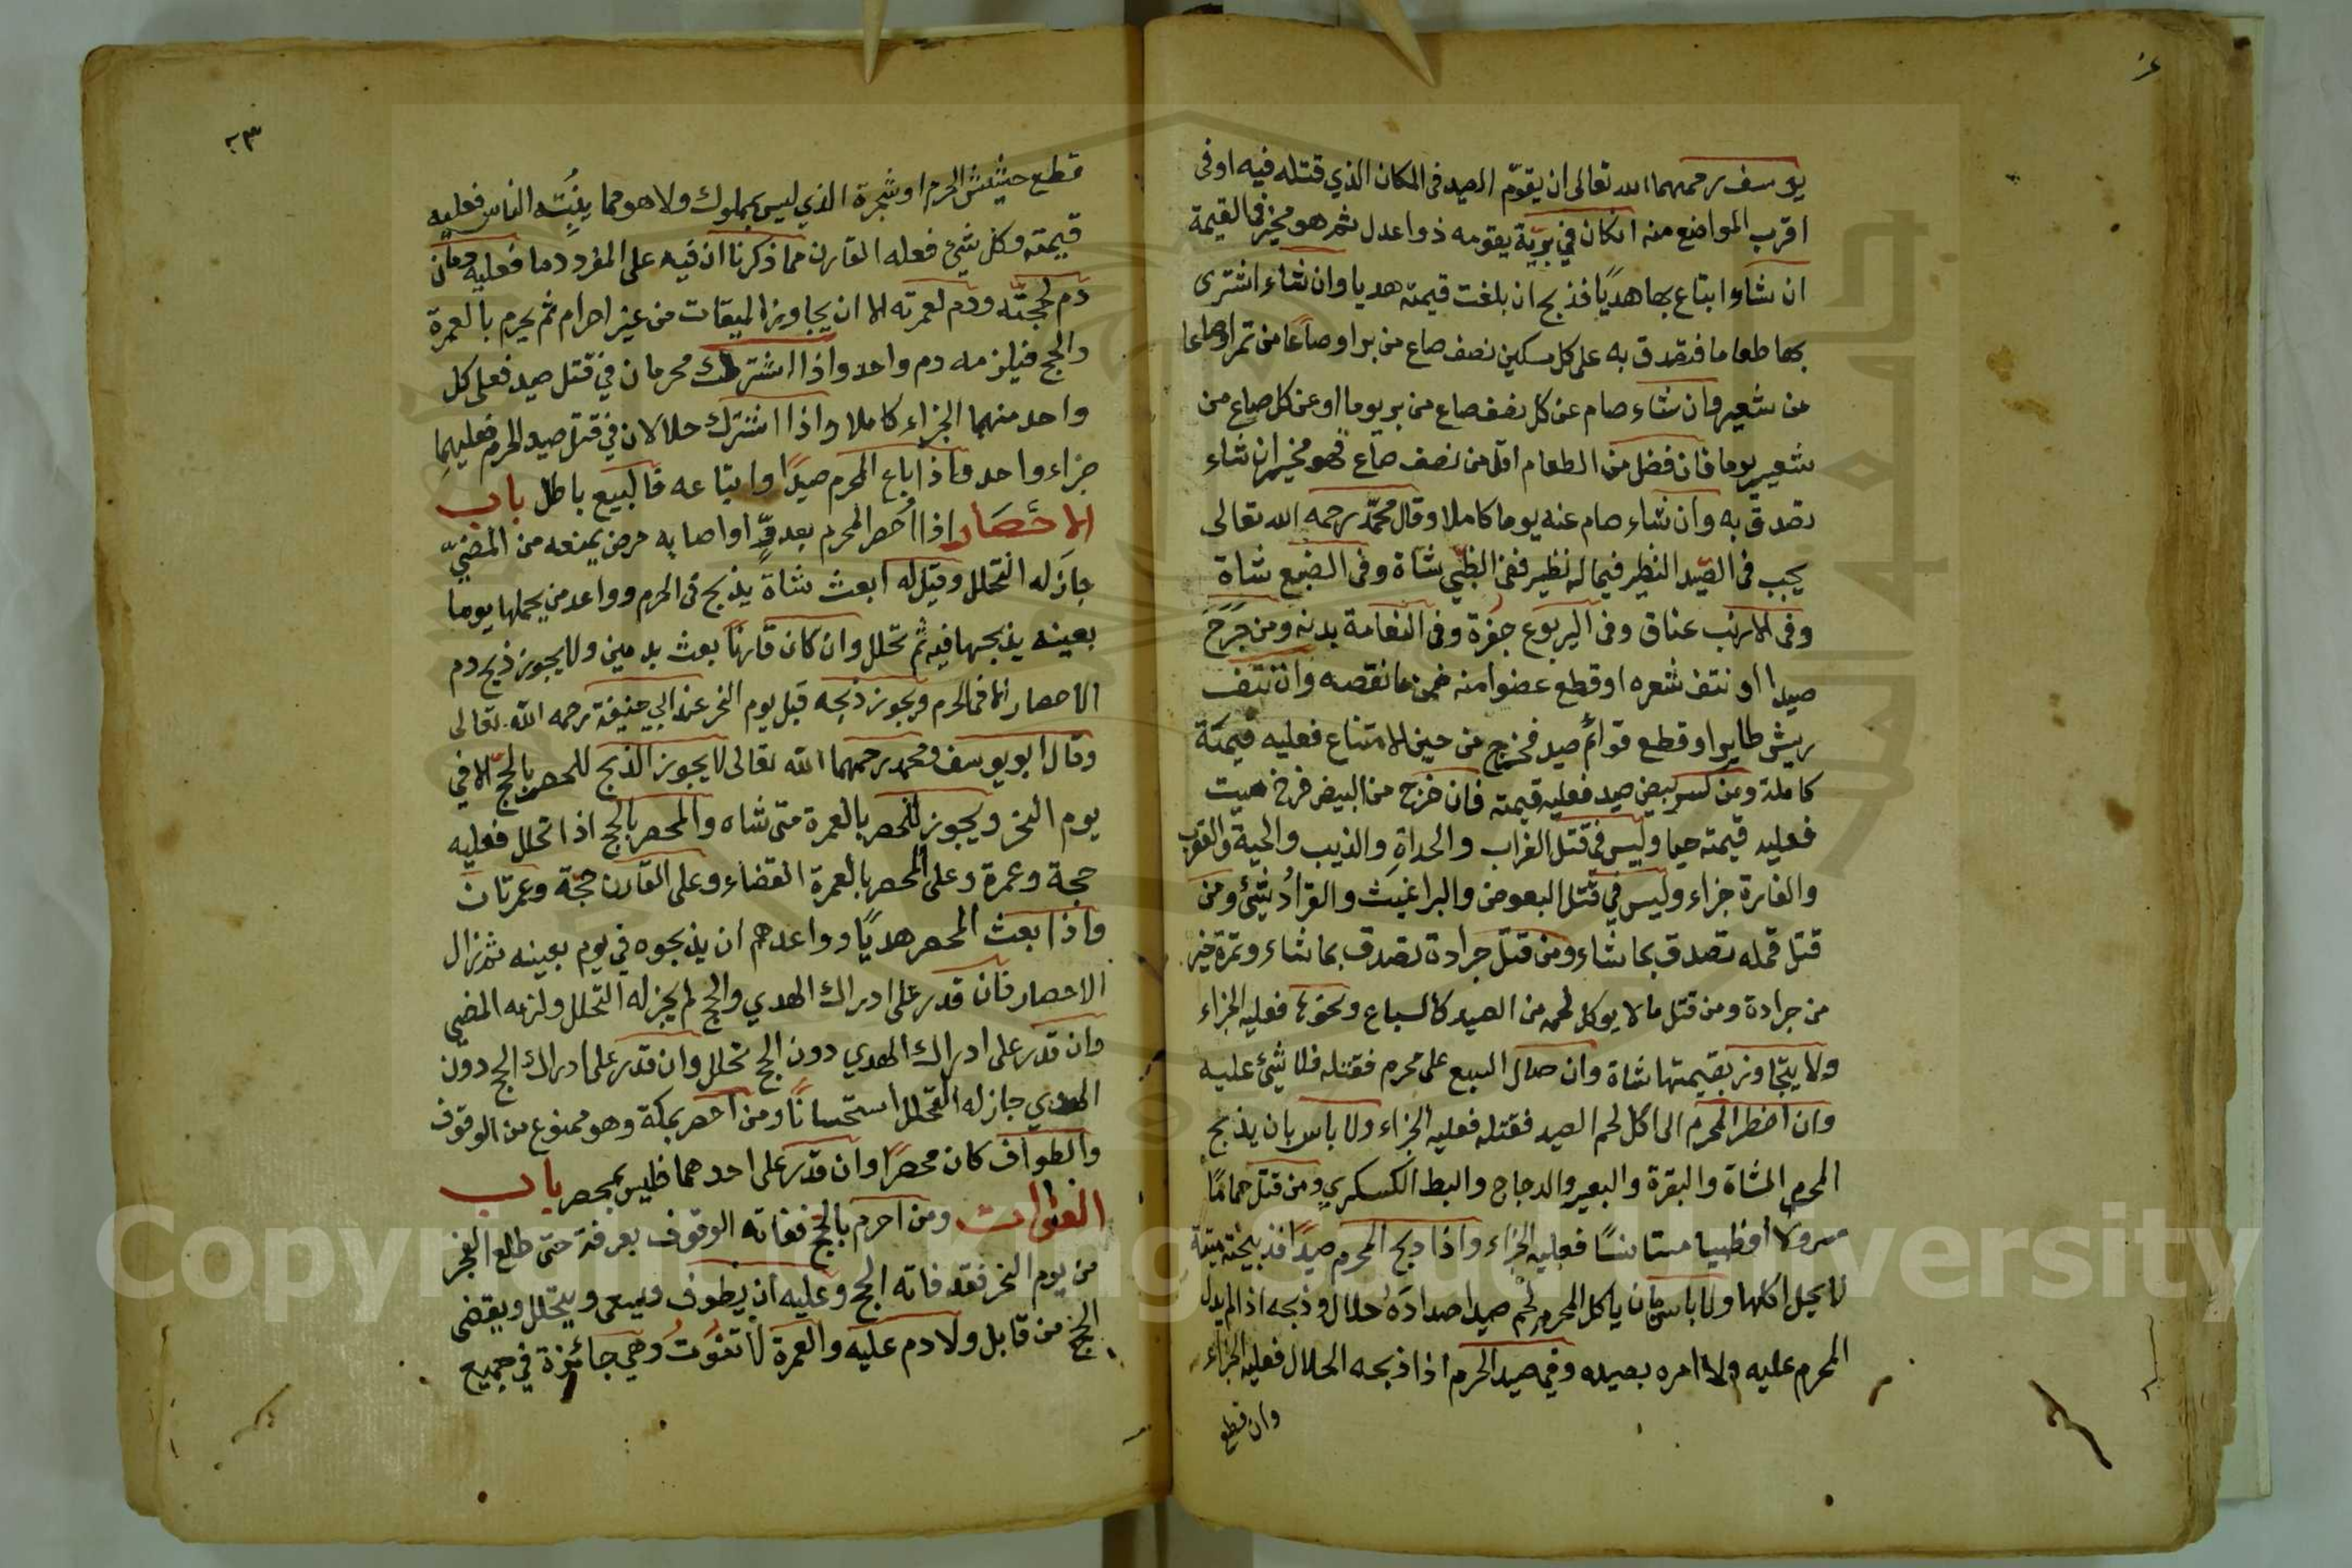 يوسف رحمهما الله تعالى ان يقوّم الصيد فى المكان الذي قتله فيه اوفى
اقرب المواضع منه انكان في بريّة يقومه ذواعدل ثم هو مخير فى القيمة
ان شاء ابتاع بها هديًا فذبح ان بلغت قيمته هديا وان شاء اشترى
بها طعاما فتصدق به على كل مسكين نصف صاع من بر او صاعًا من تمر او صاعا
من شعير وان شاء صام عن كل نصف صاع من بر يوما او عن كل صاع من
شعير يوما فان فضل من الطعام اقل من نصف صاع فهو مخير ان شاء
تصدق به وان شاء صام عنه يوما كاملا وقال محمّد رحمه الله تعالى
يجب فى الصّيد النظير فيما له نظير ففى الظبي شاة وفى الضبع شاة
وفى الارنب عناق وفى اليربوع جفرة وفى النعامة بدنه ومن جَرَحَ
صيدا او نتف شعره او قطع عضوا منه ضمن ما نقصه وان نتف
ريش طاير او قطع قوائم صيد فخرج من حيز الامتناع فعليه قيمته
كاملة ومن كسر بيض صيد فعليه قيمته فان خرج من البيض فرخ ميت
فعليه قيمته حيا وليس فى قتل الغراب والحداة والذيب والحية والعقرب
والفارة جزاء وليس في قتل البعوض والبراغيث والقراد شئ ومن
قتل قمله تصدق بما شاء ومن قتل جرادة تصدق بما شاء وتمرة خير
من جرادة ومن قتل ما لا يوكل لحمه من الصيد كالسباع ونحوها فعليه الجزاء
ولا يتجاوز بقيمتها شاة وان صال السبع على محرم فقتله فلا شئ عليه
وان اضطر المحرم الى اكل لحم الصيد فقتله فعليه الجزاء ولا باس بان يذبح
المحرم الشاة والبقرة والبعير والدجاج والبط الكسكري ومن قتل حمامًا
مسرولا او ظبيا مستانسًا فعليه الجزاء واذا ذبح المحرم صيدًا فذبيحته ميتة
لا يحل اكلها ولا باس بان ياكل المحرم لحم صيد اصطاده حلال وذبحه اذا لم يدل
المحرم عليه ولا امره بصيده وفى صيد الحرم اذا ذبحه الحلال فعليه الجزاء
وان قطع
٢٣
قطع حشيش الحرم او شجرة الذي ليس بمملوك ولا هو مما ينبُته الناس فعليه
قيمته وكل شئ فعله القارن مما ذكرنا ان فيه على المفرد دما فعليه دمان
دم لحجتّه ودم لعمرته الا ان يجاوز الميقات من غير احرام ثم يحرم بالعمرة
والحج فيلزمه دم واحد واذا اشترك محرمان في قتل صيد فعلى كل
واحد منهما الجزاء كاملا واذا اشترك حلالان في قتل صيد الحرم فعليهما
جزاء واحد واذا باع المحرم صيدًا وابتاعه فالبيع باطل باب
الاحصار اذا اُحصر المحرم بعدوّ او اصابه مرض يمنعه من المضيّ
جاز له التحلل وقيل له ابعث شاة يذبح فى الحرم وواعد من يحملها يوما
بعينه يذبحها فيه ثم تحلل وان كان قارنًا بعث بدمين ولا يجوز ذبح دم
الاحصار الا فى الحرم ويجوز ذبحه قبل يوم النحر عند ابي حنيفة رحمه الله تعالى
وقال ابو يوسف ومحمد رحمهما الله تعالى لا يجوز الذبح للمحصر بالحجّ الا في
يوم النحر ويجوز للمحصر بالعمرة متى شاء والمحصر بالحج اذا تحلل فعليه
حجة وعمرة وعلى المحصر بالعمرة القضاء وعلى القارن حجّة وعمرتان
واذا بعث المحصر هديًا وواعدهم ان يذبحوه في يوم بعينه ثم زال
الاحصار فان قدر على ادراك الهدي والحج لم يجز له التحلل ولزمه المضي
وان قدر على ادراك الهدي دون الحج تحلل وان قدر على ادراك الحج دون
الهدي جاز له التحلل استحسانًا ومن احصر بمكة وهو ممنوع من الوقوف
والطواف كان محصرًا وان قدر على احدهما فليس بمحصر باب
الفوات ومن احرم بالحجّ ففاته الوقوف بعرفة حتى طلع الفجر
من يوم النحر فقد فاته الحج وعليه ان يطوف ويسعى ويتحلل ويقضى
الحج من قابل ولا دم عليه والعمرة لا تفوت وهي جائزة في جميع
Copyright © King Saud University